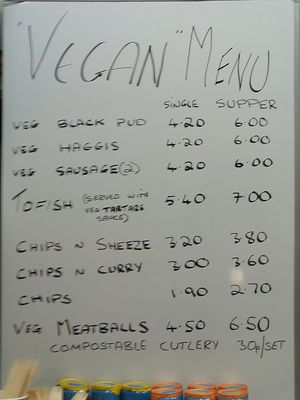 "VEGAN" MENU
SINGLE SUPPER
VEG BLACK PUD 4.20 6.00
VEG HAGGIS 4.20 6.00
VEG SAUSAGE (2) 4.20 6.00
TOFISH (SERVED WITH VEG TARTARE SAUCE) 5.40 7.00
CHIPS N SHEEZE 3.20 3.80
CHIPS N CURRY 3.00 3.60
CHIPS 1.90 2.70
VEG MEATBALLS 4.50 6.50
COMPOSTABLE CUTLERY 30p/SET